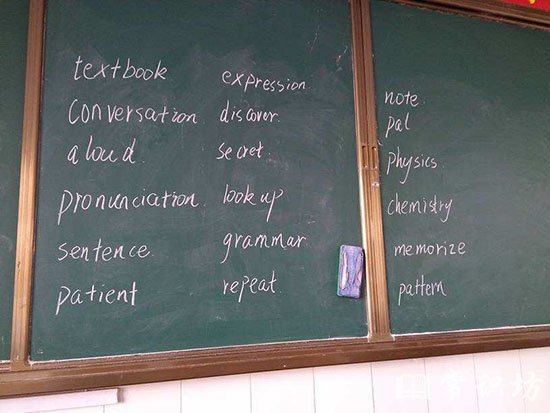 textbook
conversation
aloud.
pronunciation.
sentence.
patient
expression.
discover.
secret.
look up
grammar.
repeat.
note.
pal
physics.
chemistry
memorize
pattern